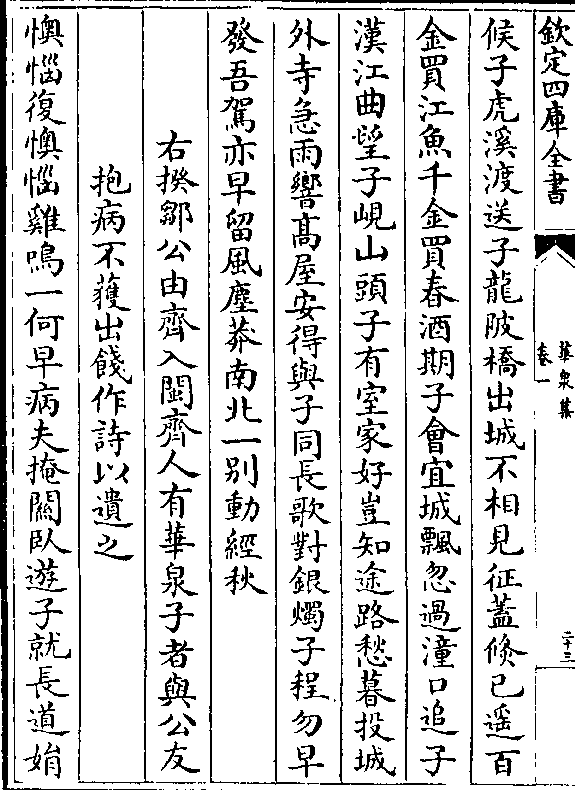 欽定四庫全書
華泉集
卷一
二十三
候子虎溪渡送子龍陂橋出城不相見征蓋倐已遥百
金買江魚千金買春酒期子會宜城飄忽過潼口追子
漢江曲望子峴山頭子有室家好豈知途路愁暮投城
外寺急雨響髙屋安得與子同長歌對銀燭子程勿早
發吾駕亦早留風塵莽南北一别動經秋
右揆鄒公由齊入閩齊人有華泉子者與公友
抱病不獲出餞作詩以遺之
懊惱復懊惱雞鳴一何早病夫掩闗臥遊子就長道娟